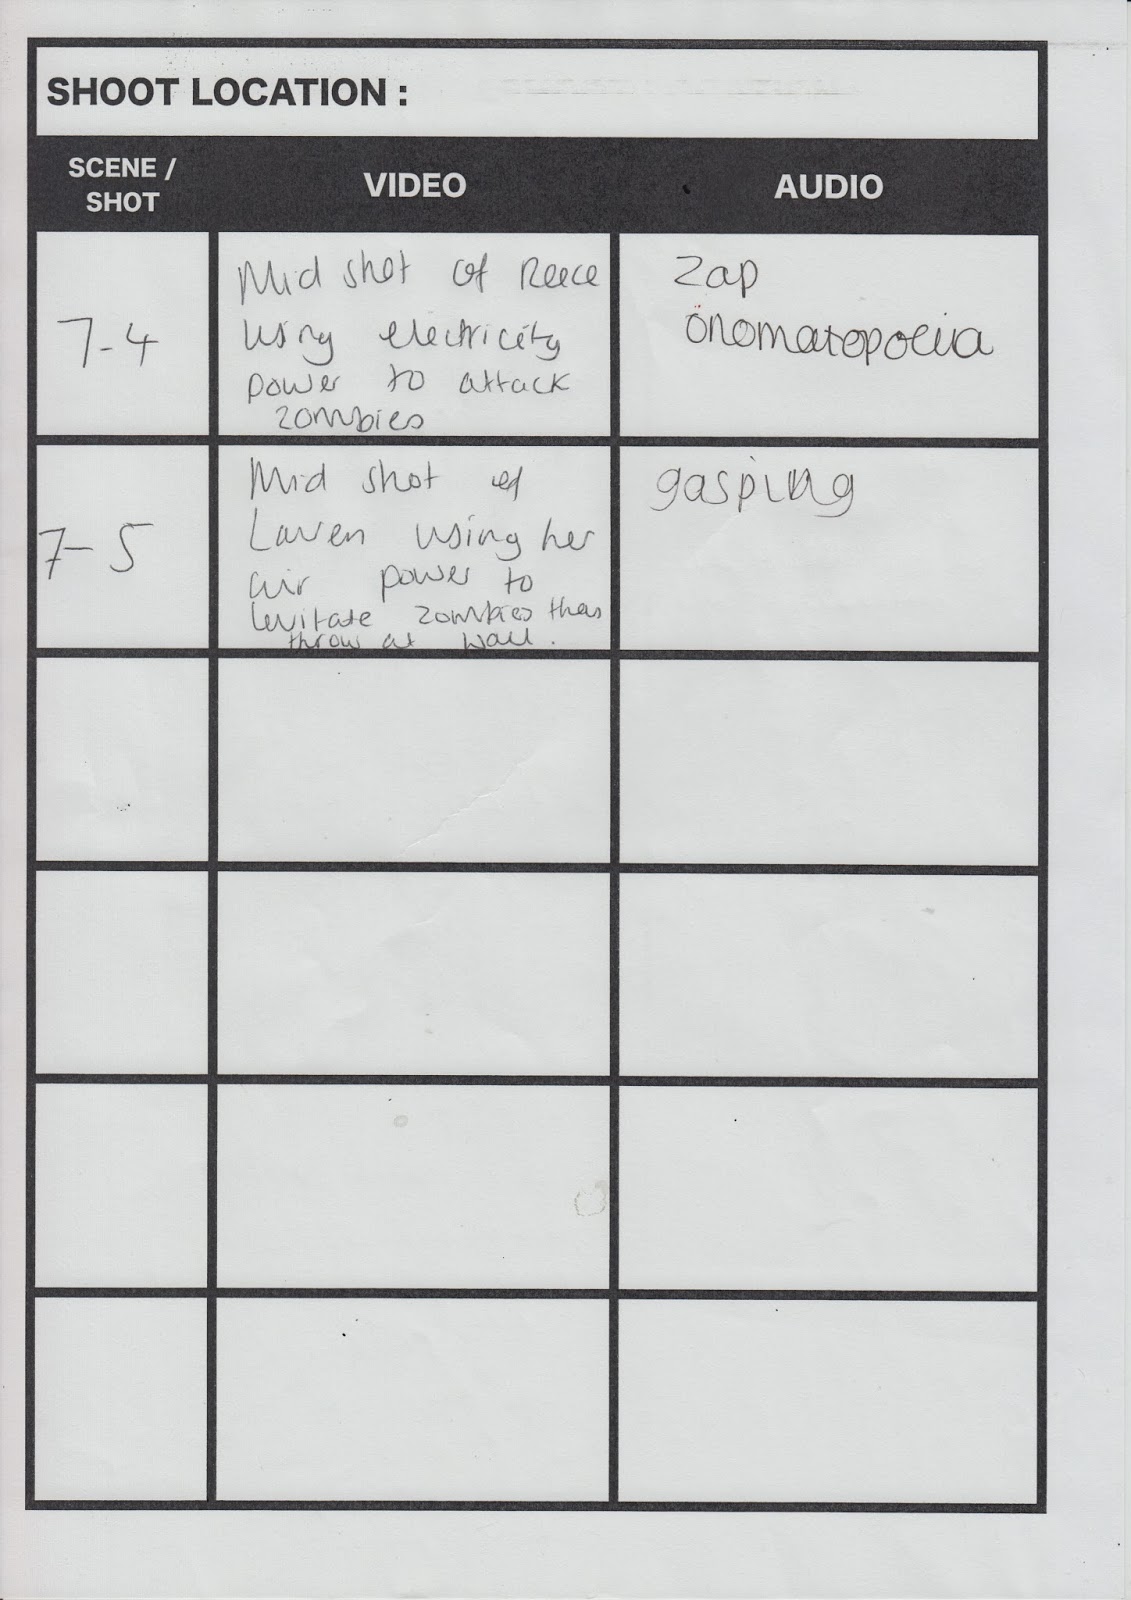 SHOOT LOCATION :
SCENE /
SHOT
VIDEO
AUDIO
7-4
Mid shot of Reece
using electricity
power to attack
zombies
Zap
onomatopoeia
7-5
Mid shot of
Lauren using her
air power to
levitate zombies then
throw at wall.
gasping